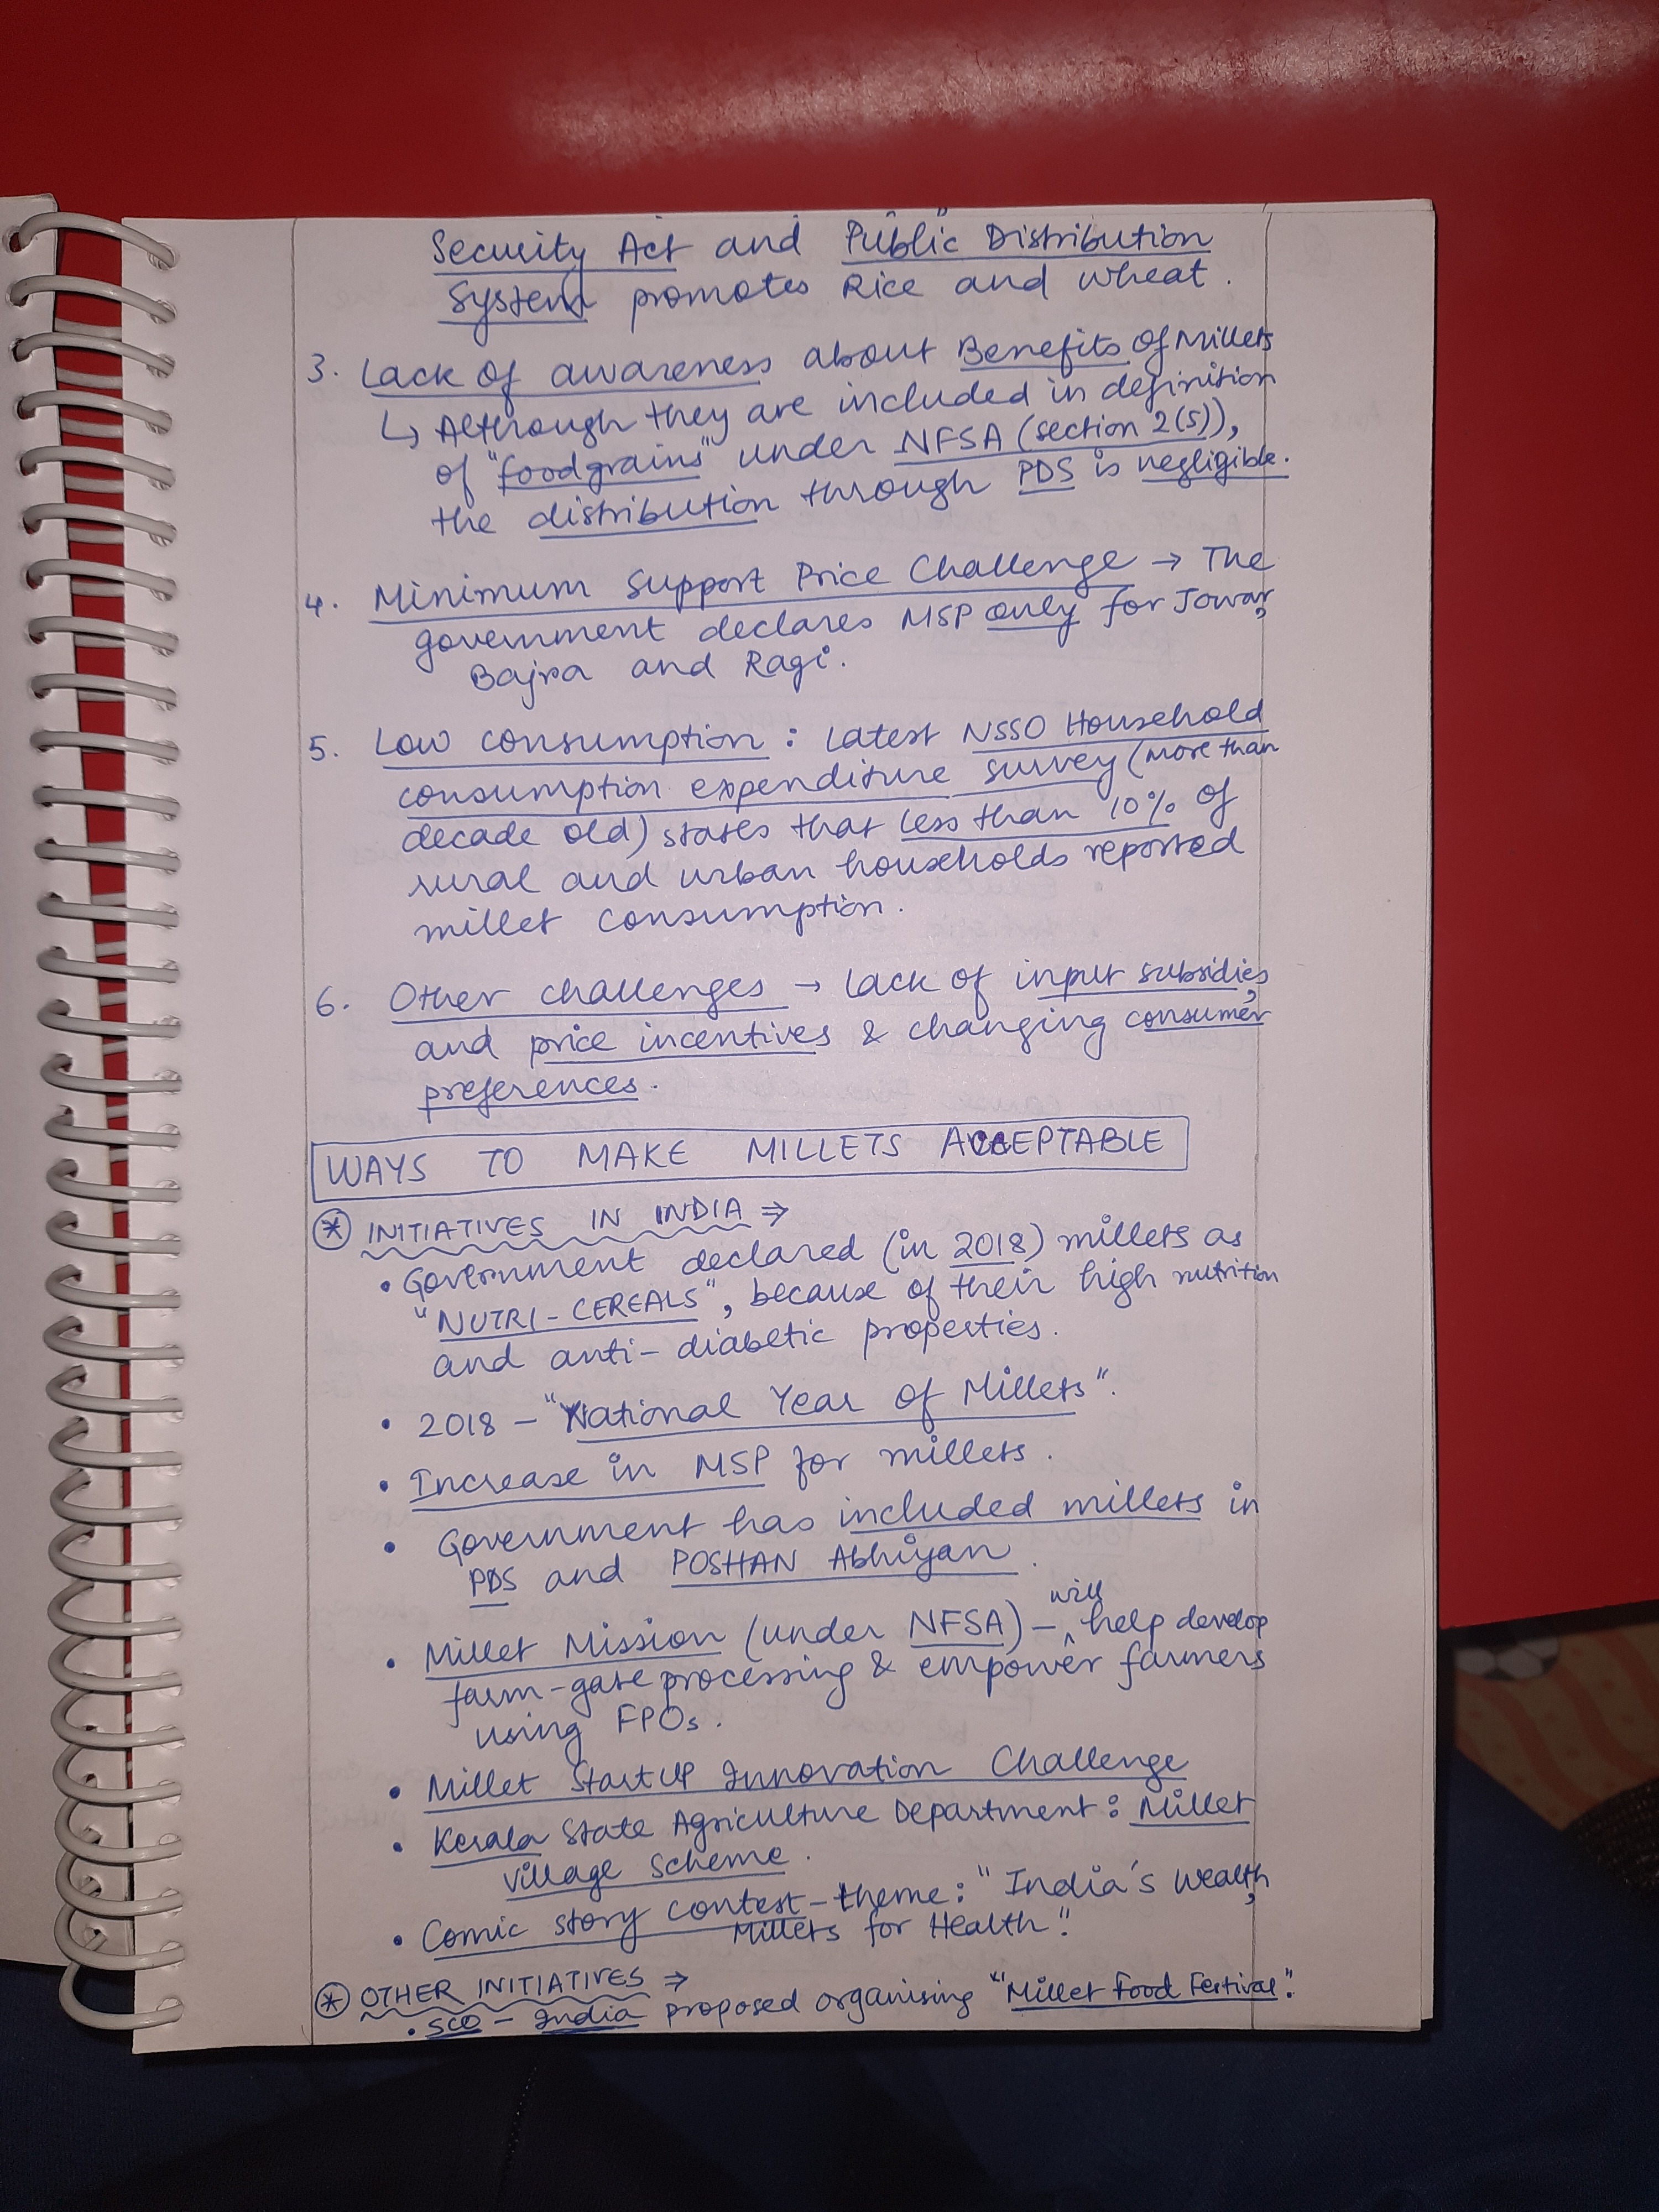 Security Act and Public Distribution
System promotes Rice and wheat.
3. Lack of awareness about Benefits of Millets
↳ Although they are included in definition
of "foodgrains" under NFSA (section 2(5)),
the distribution through PDS is negligible.
4. Minimum Support Price Challenge → The
government declares MSP only for Jowar,
Bajra and Ragi.
5. Low consumption : Latest NSSO Household
consumption expenditure survey (more than
decade old) states that less than 10% of
rural and urban households reported
millet consumption.
6. Other challenges → lack of input subsidies,
and price incentives & changing consumer
preferences.
WAYS TO MAKE MILLETS ACCEPTABLE
* INITIATIVES IN INDIA ⇒
• Government declared (in 2018) millets as
"NUTRI-CEREALS", because of their high nutrition
and anti-diabetic properties.
• 2018 - "National Year of Millets".
• Increase in MSP for millets.
• Government has included millets in
PDS and POSHAN Abhiyan.
• Millet Mission (under NFSA) - will help develop
farm-gate processing & empower farmers
using FPOs.
• Millet StartUp Innovation Challenge
• Kerala State Agriculture Department : Millet
village scheme.
• Comic story contest - theme: "India's Wealth,
Millets for Health".
* OTHER INITIATIVES ⇒
• SCO - India proposed organising "Millet Food Festival".